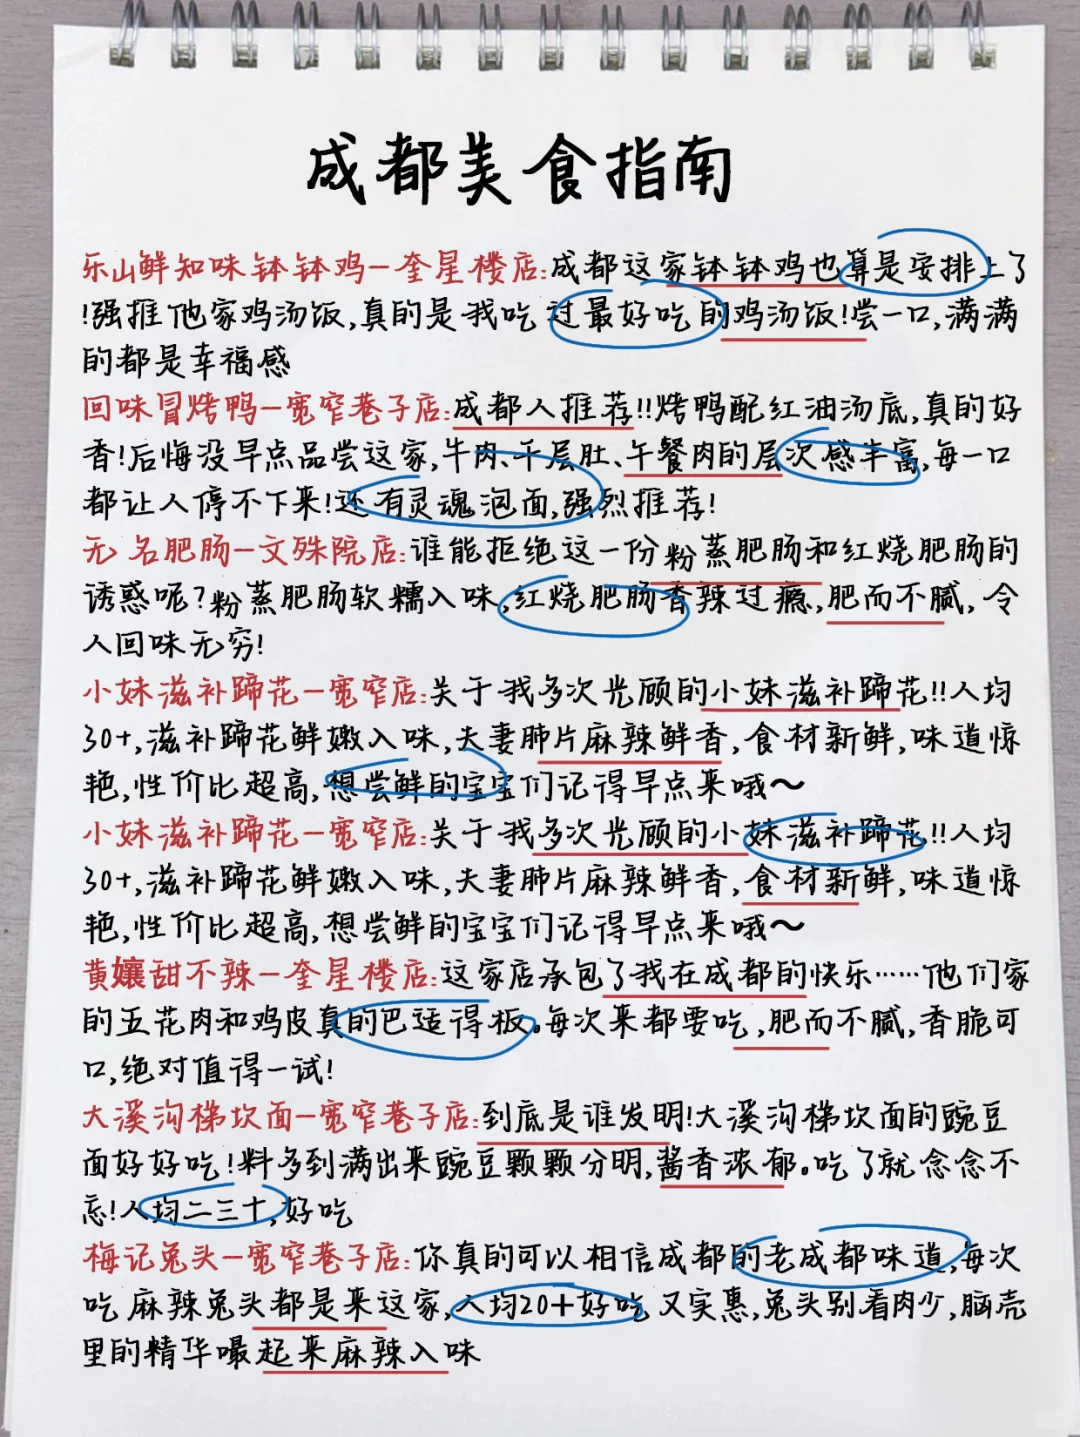 成都美食指南
乐山鲜知味钵钵鸡一奎星楼店:成都这家钵钵鸡也算是安排上了
!强推他家鸡汤饭,真的是我吃过最好吃的鸡汤饭!尝一口,满满
的都是幸福感
回味冒烤鸭一宽窄巷子店:成都人推荐!!烤鸭配红油汤底,真的好
香!后悔没早点品尝这家,牛肉、千层肚、午餐肉的层次感丰富,每一口
都让人停不下来!还有灵魂泡面,强烈推荐!
无名肥肠一文殊院店:谁能拒绝这一份粉蒸肥肠和红烧肥肠的
诱惑呢?粉蒸肥肠软糯入味,红烧肥肠香辣过瘾,肥而不腻,令
人回味无穷!
小妹滋补蹄花一宽窄店:关于我多次光顾的小妹滋补蹄花!!人均
30+,滋补蹄花鲜嫩入味,夫妻肺片麻辣鲜香,食材新鲜,味道惊
艳,性价比超高,想尝鲜的宝宝们记得早点来哦～
小妹滋补蹄花一宽窄店:关于我多次光顾的小妹滋补蹄花!!人均
30+,滋补蹄花鲜嫩入味,夫妻肺片麻辣鲜香,食材新鲜,味道惊
艳,性价比超高,想尝鲜的宝宝们记得早点来哦～
黄孃甜不辣一奎星楼店:这家店承包了我在成都的快乐……他们家
的五花肉和鸡皮真的巴适得板。每次来都要吃,肥而不腻,香脆可
口,绝对值得一试!
大溪沟梯坎面一宽窄巷子店:到底是谁发明!大溪沟梯坎面的豌豆
面好好吃!料多到满出来豌豆颗颗分明,酱香浓郁。吃了就念念不
忘!人均二三十,好吃
梅记兔头一宽窄巷子店:你真的可以相信成都的老成都味道,每次
吃麻辣兔头都是来这家,人均20+好吃又实惠,兔头别看肉少,脑壳
里的精华嘬起来麻辣入味